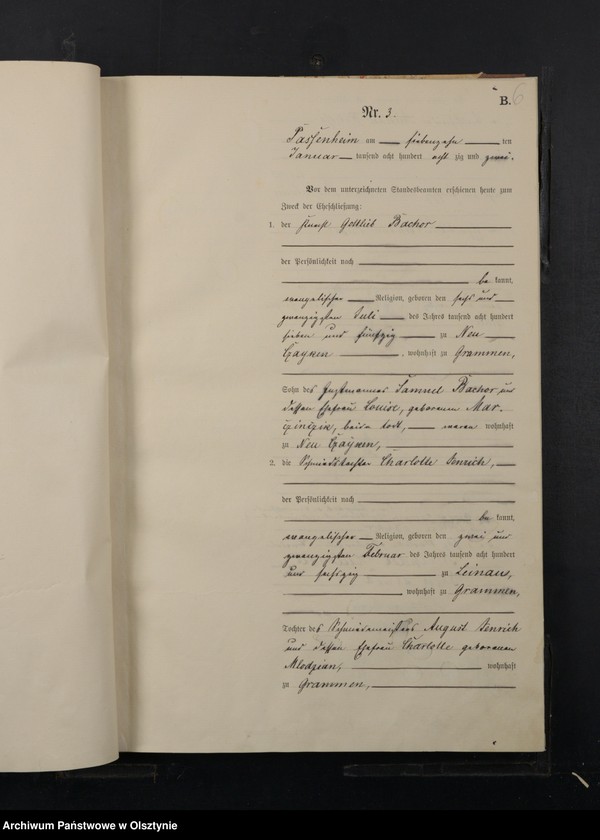 B. 6
Nr. 3.
Passenheim am siebenzehn ten
Januar tausend acht hundert acht zig und zwei.
Vor dem unterzeichneten Standesbeamten erschienen heute zum
Zweck der Eheschließung:
1. der Knecht Gottlieb Bachor
der Persönlichkeit nach
be kannt,
evangelischer Religion, geboren den sechs und
zwanzigsten Juli des Jahres tausend acht hundert
sieben und fünfzig zu Neu
, wohnhaft zu Grammen,
Sohn des Instmannes Samuel Bachor und
dessen Ehefrau Louise, geborenen Mar-
beide todt, waren wohnhaft
zu Neu
2. die Schmiedstochter Charlotte Jenrich,
der Persönlichkeit nach
be kannt,
evangelischer Religion, geboren den zwei und
zwanzigsten Februar des Jahres tausend acht hundert
und sechszig zu Leinau,
wohnhaft zu Grammen,
Tochter des Schmiedemeisters August Jenrich
und dessen Ehefrau Charlotte geborenen
Mlodzian, wohnhaft
zu Grammen,
Archiwum Państwowe w Olsztynie